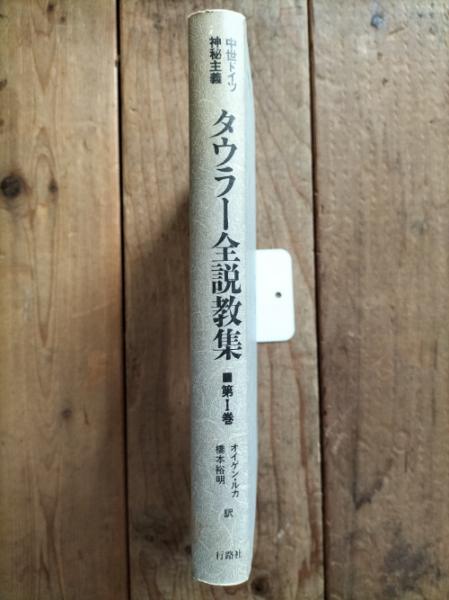 中世ドイツ
神秘主義
タウラー全説教集
■第Ⅰ巻
オイゲン・ルカ
橋本裕明
訳
行路社